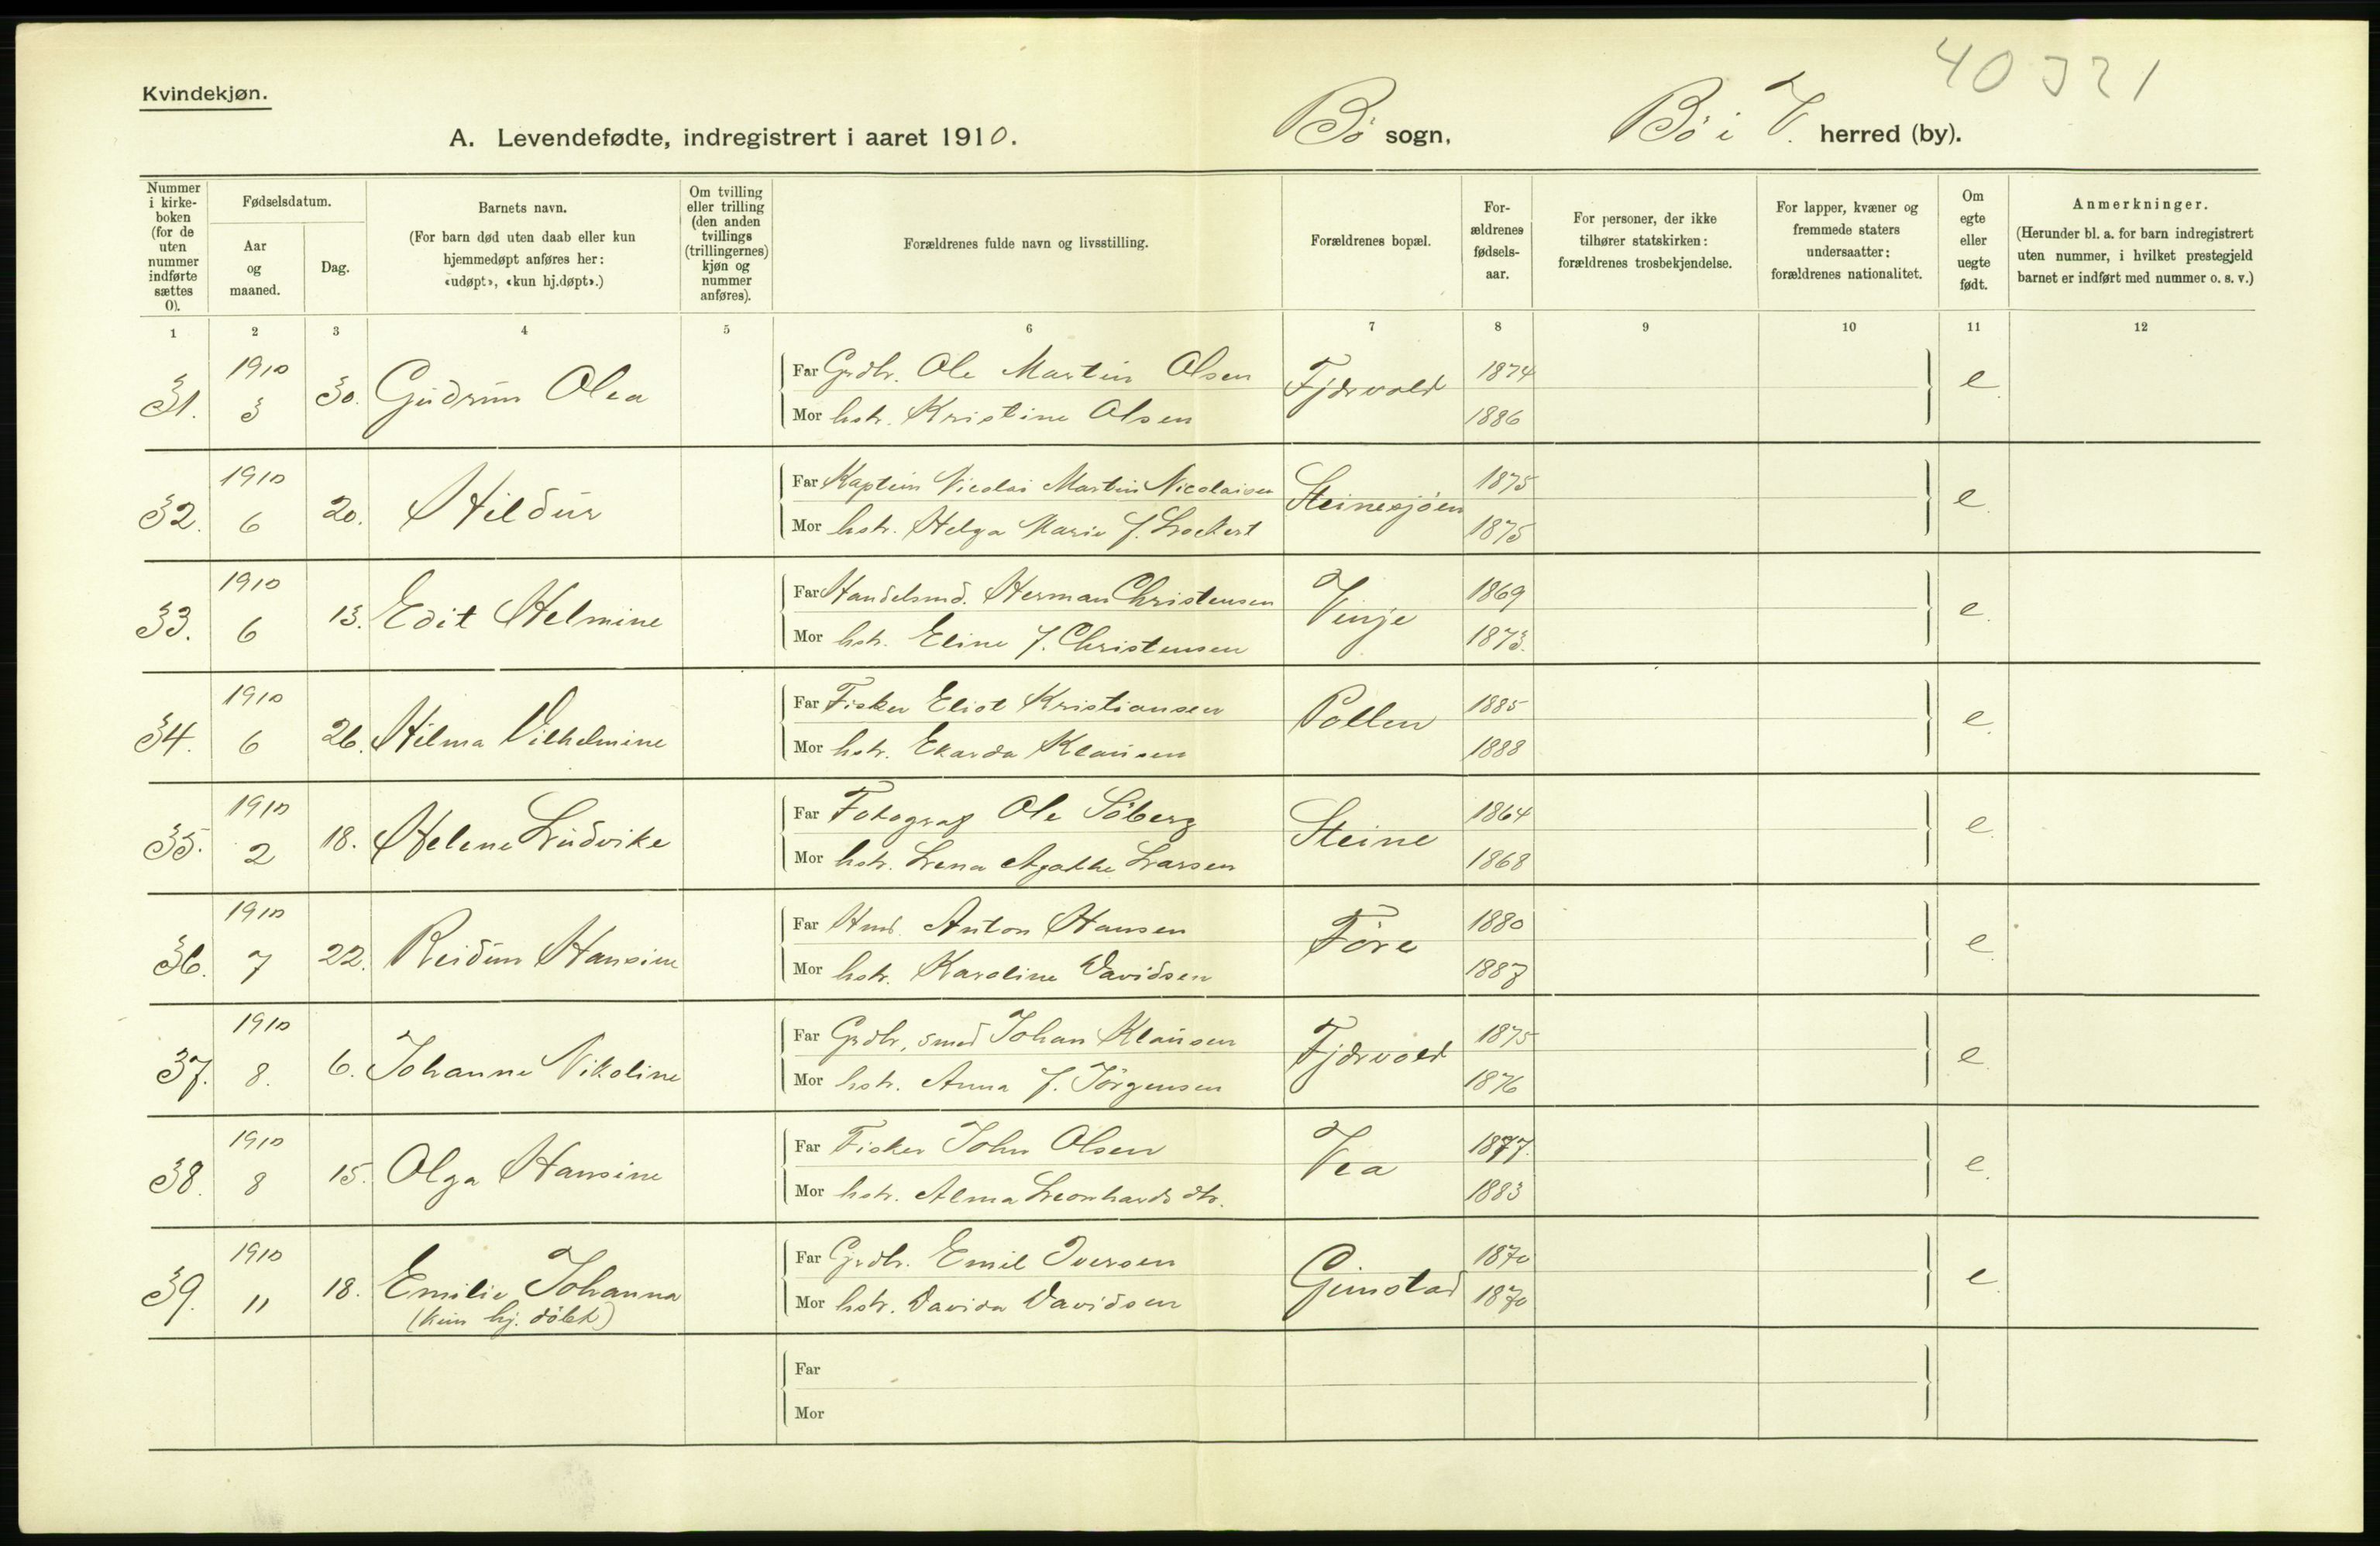 40321
Kvindekjøn.
A. Levendefødte, indregistrert i aaret 1910. Bö sogn, Bö i V. herred (by).
Nummer i kirke-boken (for de uten nummer indførte sættes 0).
Fødselsdatum.
Aar og maaned.
Dag.
Barnets navn.
(For barn død uten daab eller kun
hjemmedøpt anføres her:
«udøpt», «kun hj.døpt».)
Om tvilling
eller trilling
(den anden
tvillings
(trillingernes)
kjøn og
nummer
anføres).
Forældrenes fulde navn og livsstilling.
Forældrenes bopæl.
For-
ældrenes
fødsels-
aar.
For personer, der ikke
tilhører statskirken:
forældrenes trosbekjendelse.
For lapper, kvæner og
fremmede staters
undersaatter:
forældrenes nationalitet.
Om
egte
eller
uegte
født.
Anmerkninger.
(Herunder bl. a. for barn indregistrert
uten nummer, i hvilket prestegjeld
barnet er indført med nummer o. s. v.)
1 2 3 4 5 6 7 8 9 10 11 12
31. 1910 3 30. Gudrun Olea Far Grdbr. Ole Martin Olsen Fjærvold 1874 e.
Mor hstr. Kristine Olsen 1886
32. 1910 6 20. Hildur Far Kaptein Nicolai Martin Nicolaisen Steinesjöen 1875 e.
Mor hstr. Helga Marie J. Lockert 1875
33. 1910 6 13. Edit Helmine Far Handelsmd. Herman Christensen Vinje 1869 e.
Mor hstr. Eline J. Christensen 1873.
34. 1910 6 26. Hilma Vilhelmine Far Fisker Eliot Kristiansen Pollen 1885 e.
Mor hstr. Ekarda Klausen 1888
35. 1910 2 18. Helene Ludvike Far Fotograf Ole Söberg Steine 1864 e.
Mor hstr. Lena Agathe Larsen 1868
36. 1910 7 22. Reidun Hansine Far Hmd. Anton Hansen Före 1880 e.
Mor hstr. Karoline Davidsen
37. 1910 8. 6. Johanne Nikoline Far Grdbr, smed Johan Klausen Fjærvold 1875 e.
Mor hstr. Anna J. Jörgensen 1876
38. 1910 8 15. Olga Hansine Far Fisker John Olsen Vea 1877. e.
Mor hstr. Alma Leonhardsdtr. 1883
39. 1910 11 18. Emilie Johanna Far Grdbr. Emil Iversen Gimstad 1870 e.
(kun hj. döbt) Mor hstr. Davida Davidsen 1870
Far
Mor